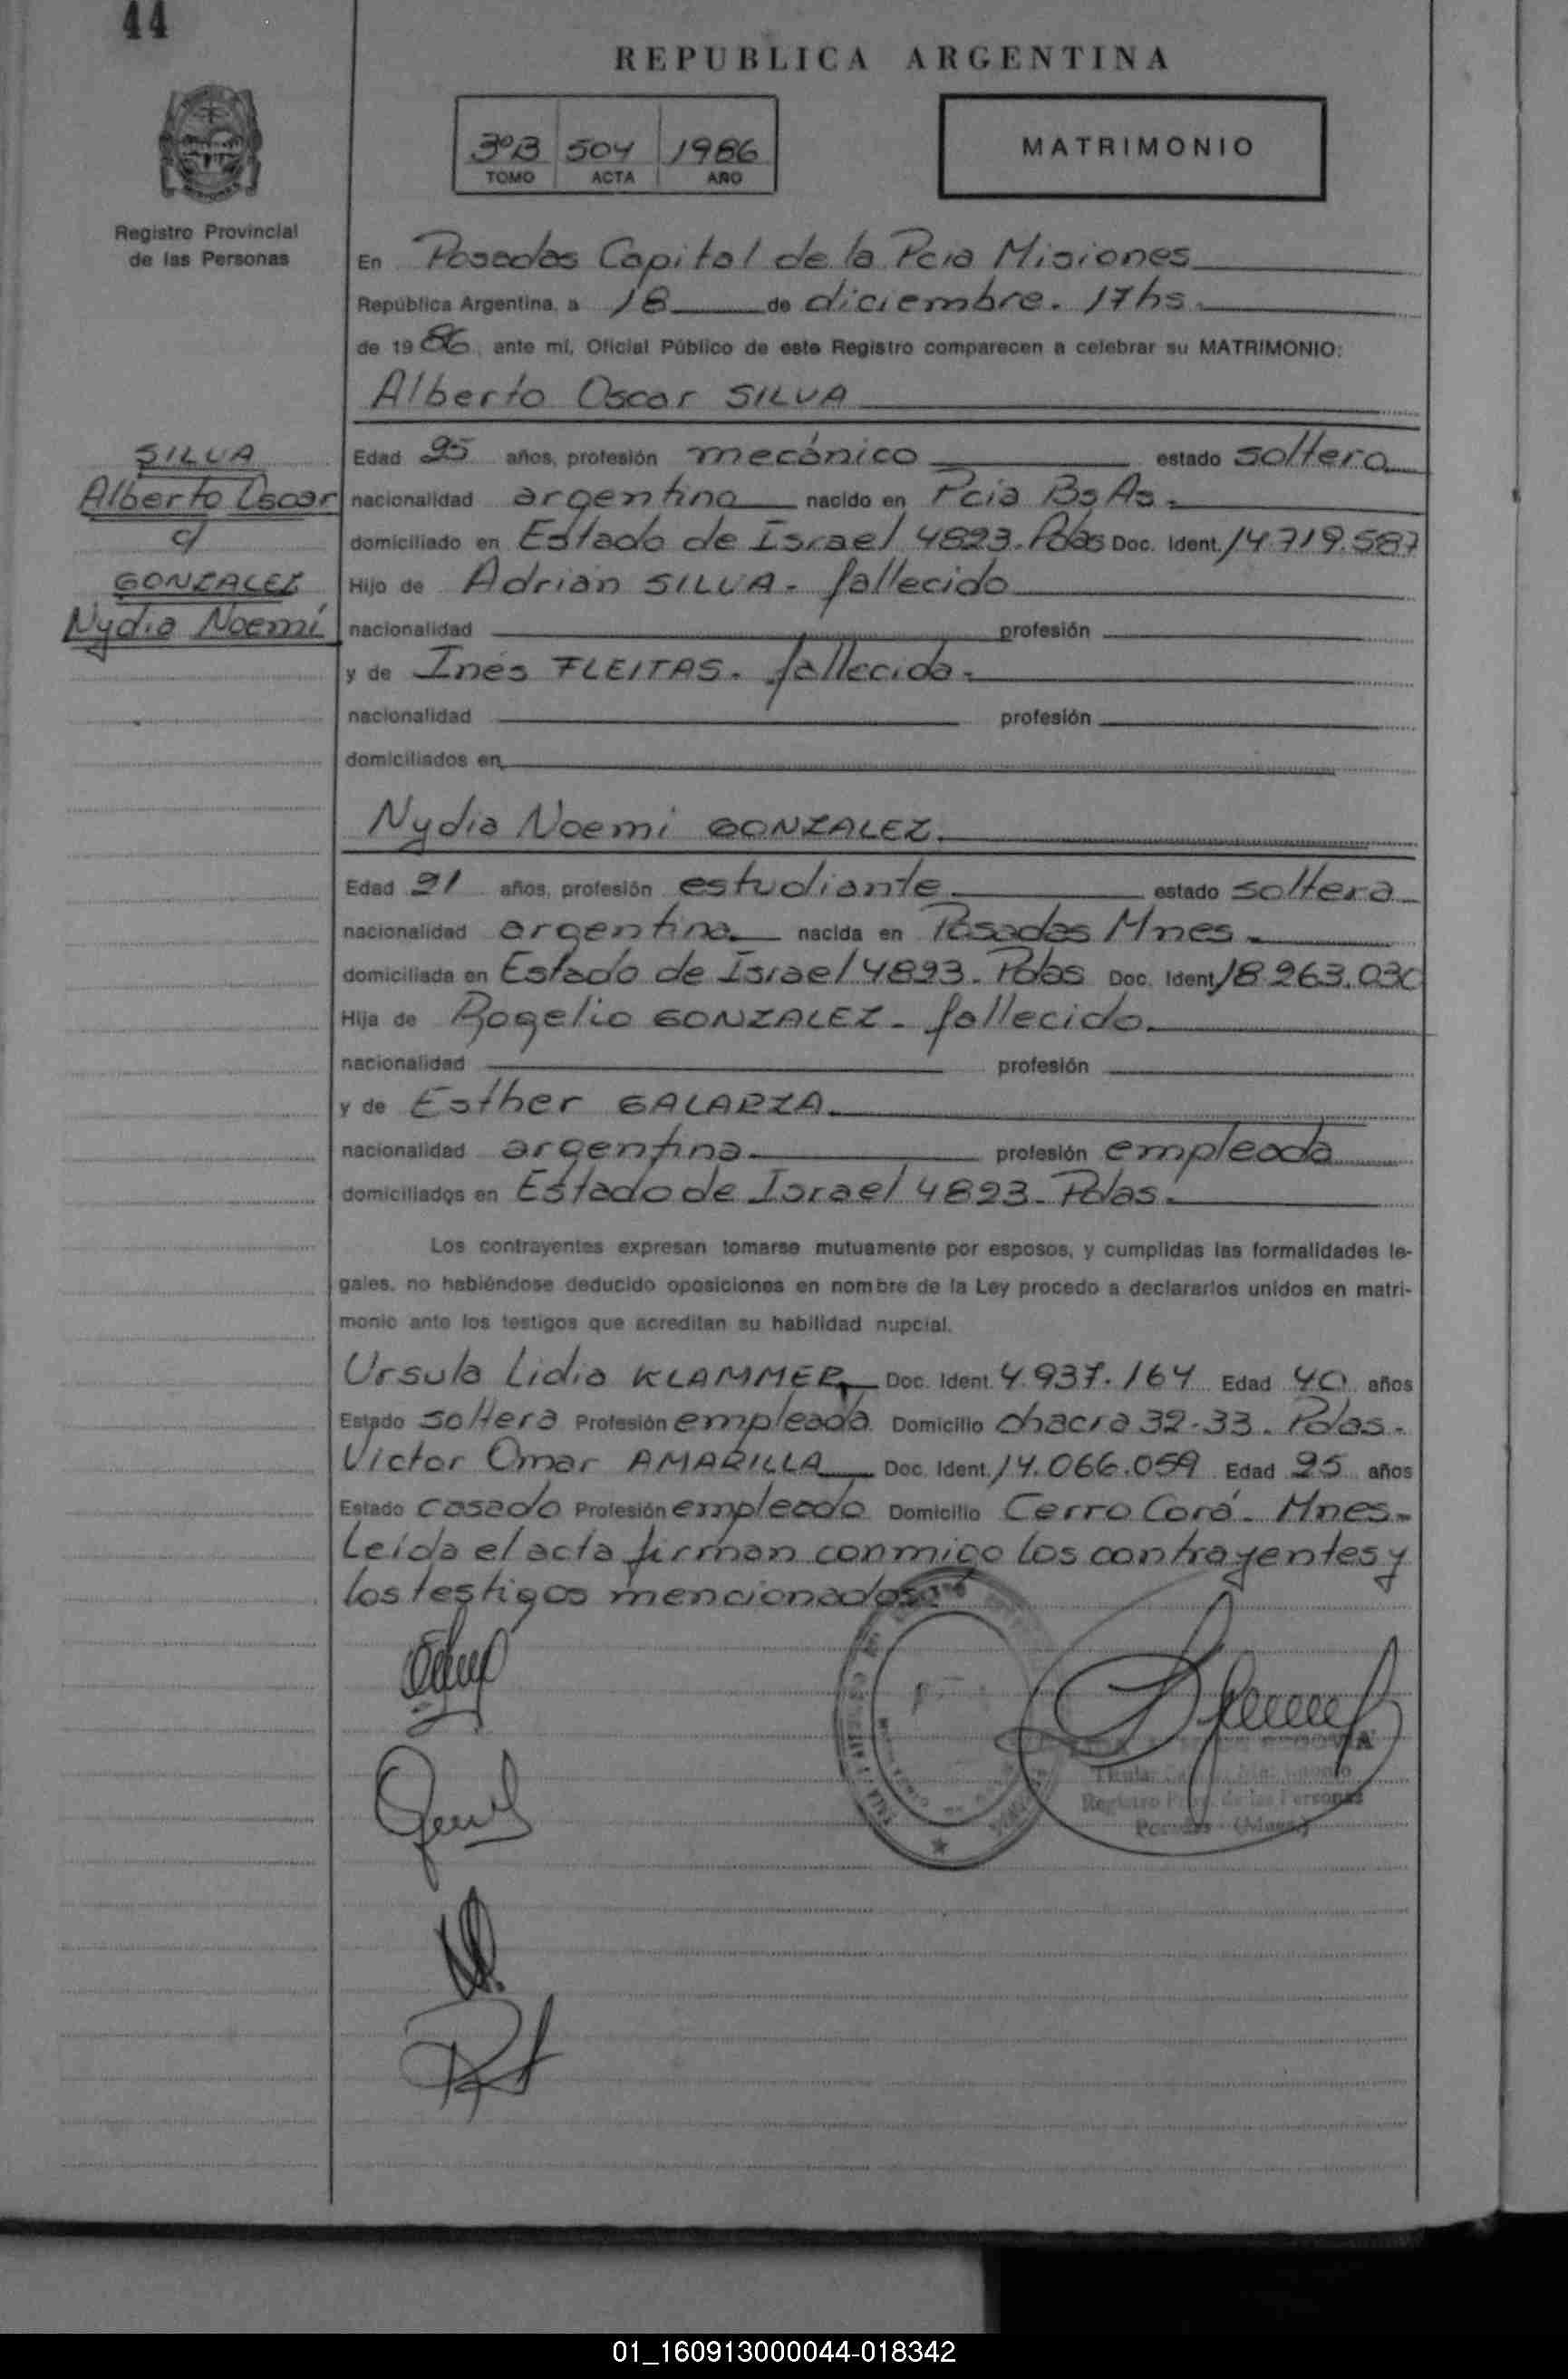 44
REPUBLICA ARGENTINA
3ºB 504 1986
TOMO ACTA AÑO
MATRIMONIO
Registro Provincial
de las Personas
En Posadas Capital de la Pcia Misiones
República Argentina, a 18 de diciembre. 17hs.
de 1986, ante mí, Oficial Público de este Registro comparecen a celebrar su MATRIMONIO:
Alberto Oscar SILVA
SILVA
Alberto Oscar
c/
GONZALEZ
Nydia Noemí
Edad 25 años, profesión mecánico estado soltero
nacionalidad argentino nacido en Pcia Bs As.
domiciliado en Estado de Israel 4823. Pdas Doc. Ident. 14.719.587
Hijo de Adrián SILVA - fallecido
nacionalidad profesión
y de Inés FLEITAS. fallecida.
nacionalidad profesión
domiciliados en
Nydia Noemi GONZALEZ.
Edad 21 años, profesión estudiante estado soltera
nacionalidad argentina nacida en Posadas Mnes.
domiciliada en Estado de Israel 4823. Pdas Doc. Ident. 18.263.030
Hija de Rogelio GONZALEZ - fallecido.
nacionalidad profesión
y de Esther GALARZA.
nacionalidad argentina profesión empleada
domiciliados en Estado de Israel 4823. Pdas.
Los contrayentes expresan tomarse mutuamente por esposos, y cumplidas las formalidades le-
gales, no habiéndose deducido oposiciones en nombre de la Ley procedo a declararlos unidos en matri-
monio ante los testigos que acreditan su habilidad nupcial.
Ursula Lidia KLAMMER Doc. Ident. 4.937.164 Edad 40 años
Estado soltera Profesión empleada Domicilio chacra 32-33. Pdas.
Victor Omar AMARILLA Doc. Ident. 14.066.059 Edad 25 años
Estado casado Profesión empleado Domicilio Cerro Corá. Mnes.
Leída el acta firman conmigo los contrayentes y
los testigos mencionados.
Registro Prov. de las Personas
Posadas (Mnes.)
01_160913000044-018342